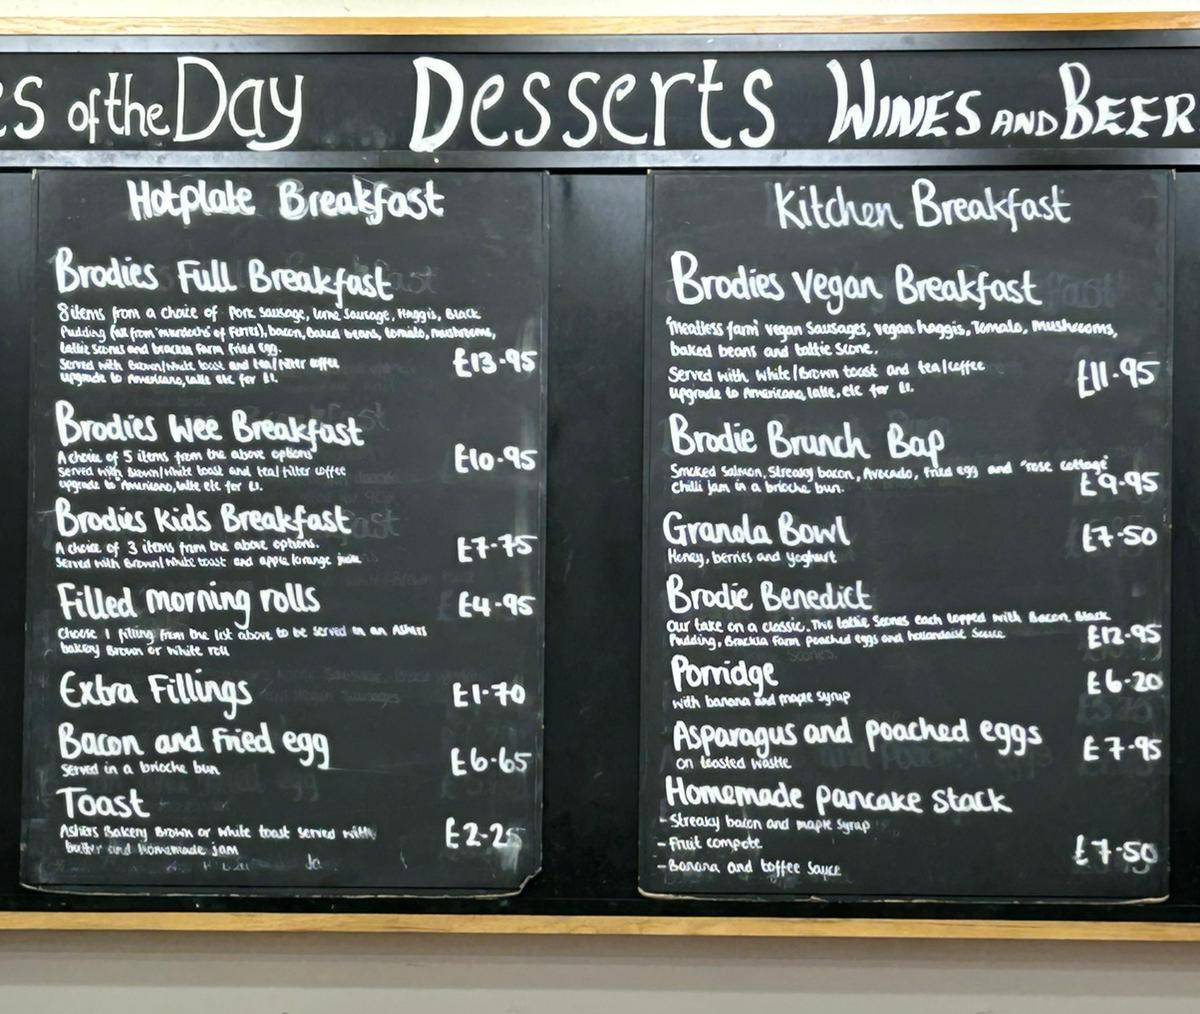 es of the Day Desserts WINES AND BEER
Hotplate Breakfast
Brodies Full Breakfast
8 items from a choice of Pork Sausage, Lorne Sausage, Haggis, Black
Pudding (all from 'murdochs' of Forres), bacon, baked beans, tomato, mushrooms,
tattie scones and bracklia Farm fried egg.
Served with Brown/White toast and tea/filter coffee
upgrade to Americano, latte etc for £1.
£13.95
Brodies Wee Breakfast
A choice of 5 items from the above options
Served with Brown/White toast and tea/filter coffee
upgrade to Americano, latte etc for £1.
£10.95
Brodies Kids Breakfast
A choice of 3 items from the above options.
Served with Brown/White toast and apple/orange juice
£7.75
Filled morning rolls £4.95
Choose 1 filling from the list above to be served in an Ashers
bakery Brown or White roll
Extra Fillings £1.70
Bacon and Fried egg
Served in a brioche bun £6.65
Toast
Ashers Bakery Brown or White toast served with
butter and Homemade jam
£2.25
Kitchen Breakfast
Brodies Vegan Breakfast
'Meatless farm' vegan Sausages, vegan haggis, Tomato, Mushrooms,
baked beans and tattie Scone.
Served with White/Brown toast and tea/coffee
upgrade to Americano, latte, etc for £1.
£11.95
Brodie Brunch Bap
Smoked Salmon, Streaky bacon, Avocado, Fried egg and "rose cottage"
Chilli jam in a brioche bun. £9.95
Granola Bowl £7.50
Honey, berries and yoghurt
Brodie Benedict
Our take on a classic. Two tattie Scones each topped with Bacon, Black
Pudding, Bracklia Farm Poached eggs and hollandaise Sauce £12.95
Porridge £6.20
with banana and maple syrup
Asparagus and poached eggs £7.95
on toasted waffle
Homemade pancake stack
- Streaky bacon and maple Syrup
- Fruit compote £7.50
- Banana and toffee Sauce